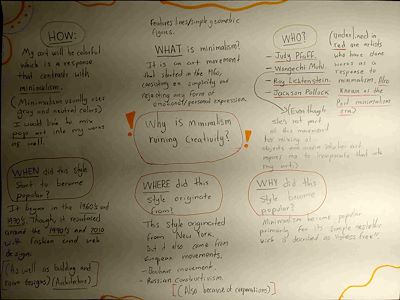 HOW:
My art will be colorful
which is a response
that contrasts with
minimalism.
(Minimalism usually uses
gray and neutral colors)
I would love to mix
pop art into my works
as well.
Features lines/simple geometric
figures.
WHAT is minimalism?
It is an art movement
that started in the 1960s,
consisting on simplicity and
rejecting any form of
emotional/personal expression.
WHO?
(Underlined in
red are artists
who have done
works as a
response to
minimalism, Also
Known as the
Post minimalism
era)
- Judy Pfaff.
- Wangechi Mutu.
- Roy Lichtenstein.
- Jackson Pollock
(Even though
she's not part
of this movement
her mixing of
objects and
inspires me to incorporate that into
my art.)
Why is Minimalism
ruining Creativity?
WHEN did this style
start to become
popular?
It began in the 1960's and
1970's. Though, it resurfaced
around the 1990's and 2010
with fashion and web
designs.
(As well as building and
room designs) (Architecture)
WHERE did this
style originate
from?
This style originated
from New York.
But it also came from
European movements,
- Bauhaus movement.
- Russian Constructivism.
[(Also because of corporations)]
WHY did this
style become
popular?
Minimalism became popular
primarily for its simple aesthetic
which is described as